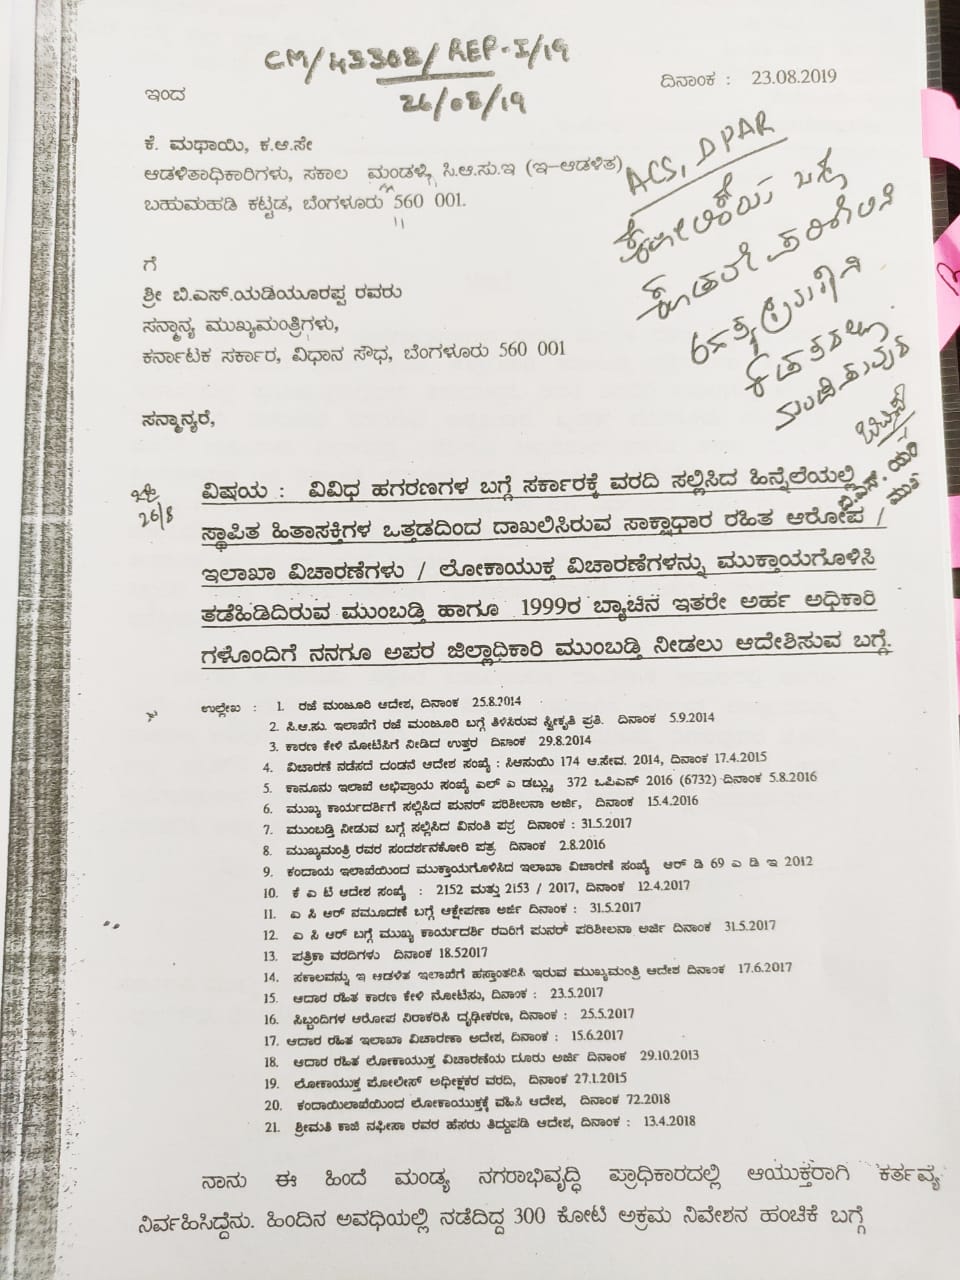 CM/43308/REP-I/19
26/08/19
ದಿನಾಂಕ : 23.08.2019
ಇಂದ
ಕೆ. ಮಥಾಯಿ, ಕ.ಆ.ಸೇ
ಆಡಳಿತಾಧಿಕಾರಿಗಳು, ಸಕಾಲ ಮಂಡಳಿ, ಸಿ.ಆ.ಸು.ಇ (ಇ-ಆಡಳಿತ)
ಬಹುಮಹಡಿ ಕಟ್ಟಡ, ಬೆಂಗಳೂರು 560 001.
ACS, DPAR
ಗೆ
ಶ್ರೀ ಬಿ.ಎಸ್.ಯಡಿಯೂರಪ್ಪ ರವರು
ಸನ್ಮಾನ್ಯ ಮುಖ್ಯಮಂತ್ರಿಗಳು,
ಕರ್ನಾಟಕ ಸರ್ಕಾರ, ವಿಧಾನ ಸೌಧ, ಬೆಂಗಳೂರು 560 001
ಸನ್ಮಾನ್ಯರೆ,
26/8
ವಿಷಯ : ವಿವಿಧ ಹಗರಣಗಳ ಬಗ್ಗೆ ಸರ್ಕಾರಕ್ಕೆ ವರದಿ ಸಲ್ಲಿಸಿದ ಹಿನ್ನೆಲೆಯಲ್ಲಿ
ಸ್ಥಾಪಿತ ಹಿತಾಸಕ್ತಿಗಳ ಒತ್ತಡದಿಂದ ದಾಖಲಿಸಿರುವ ಸಾಕ್ಷಾಧಾರ ರಹಿತ ಆರೋಪ /
ಇಲಾಖಾ ವಿಚಾರಣೆಗಳು / ಲೋಕಾಯುಕ್ತ ವಿಚಾರಣೆಗಳನ್ನು ಮುಕ್ತಾಯಗೊಳಿಸಿ
ತಡೆಹಿಡಿದಿರುವ ಮುಂಬಡ್ತಿ ಹಾಗೂ 1999ರ ಬ್ಯಾಚಿನ ಇತರೇ ಅರ್ಹ ಅಧಿಕಾರಿ
ಗಳೊಂದಿಗೆ ನನಗೂ ಅಪರ ಜಿಲ್ಲಾಧಿಕಾರಿ ಮುಂಬಡ್ತಿ ನೀಡಲು ಆದೇಶಿಸುವ ಬಗ್ಗೆ.
ಉಲ್ಲೇಖ : 1. ರಜೆ ಮಂಜೂರಿ ಆದೇಶ, ದಿನಾಂಕ 25.8.2014
2. ಸಿ.ಆ.ಸು. ಇಲಾಖೆಗೆ ರಜೆ ಮಂಜೂರಿ ಬಗ್ಗೆ ತಿಳಿಸಿರುವ ಸ್ವೀಕೃತಿ ಪ್ರತಿ. ದಿನಾಂಕ 5.9.2014
3. ಕಾರಣ ಕೇಳಿ ನೋಟಿಸಿಗೆ ನೀಡಿದ ಉತ್ತರ ದಿನಾಂಕ 29.8.2014
4. ವಿಚಾರಣೆ ನಡೆಸದೆ ದಂಡನೆ ಆದೇಶ ಸಂಖ್ಯೆ : ಸಿಆಸುಯಿ 174 ಆ.ಸೇವ. 2014, ದಿನಾಂಕ 17.4.2015
5. ಕಾನೂನು ಇಲಾಖೆ ಅಭಿಪ್ರಾಯ ಸಂಖ್ಯೆ ಎಲ್ ಎ ಡಬ್ಲ್ಯು 372 ಒಪಿಎನ್ 2016 (6732) ದಿನಾಂಕ 5.8.2016
6. ಮುಖ್ಯ ಕಾರ್ಯದರ್ಶಿಗೆ ಸಲ್ಲಿಸಿದ ಪುನರ್ ಪರಿಶೀಲನಾ ಅರ್ಜಿ, ದಿನಾಂಕ 15.4.2016
7. ಮುಂಬಡ್ತಿ ನೀಡುವ ಬಗ್ಗೆ ಸಲ್ಲಿಸಿದ ವಿನಂತಿ ಪತ್ರ ದಿನಾಂಕ : 31.5.2017
8. ಮುಖ್ಯಮಂತ್ರಿ ರವರ ಸಂದರ್ಶನಕೋರಿ ಪತ್ರ ದಿನಾಂಕ 2.8.2016
9. ಕಂದಾಯ ಇಲಾಖೆಯಿಂದ ಮುಕ್ತಾಯಗೊಳಿಸಿದ ಇಲಾಖಾ ವಿಚಾರಣೆ ಸಂಖ್ಯೆ ಆರ್ ಡಿ 69 ಎ ಡಿ ಇ 2012
10. ಕೆ ಎ ಟಿ ಆದೇಶ ಸಂಖ್ಯೆ : 2152 ಮತ್ತು 2153 / 2017, ದಿನಾಂಕ 12.4.2017
11. ಎ ಸಿ ಆರ್ ನಮೂದಣೆ ಬಗ್ಗೆ ಆಕ್ಷೇಪಣಾ ಅರ್ಜಿ ದಿನಾಂಕ : 31.5.2017
12. ಎ ಸಿ ಆರ್ ಬಗ್ಗೆ ಮುಖ್ಯ ಕಾರ್ಯದರ್ಶಿ ರವರಿಗೆ ಪುನರ್ ಪರಿಶೀಲನಾ ಅರ್ಜಿ ದಿನಾಂಕ 31.5.2017
13. ಪತ್ರಿಕಾ ವರದಿಗಳು ದಿನಾಂಕ 18.52017
14. ಸಕಾಲವನ್ನು ಇ ಆಡಳಿತ ಇಲಾಖೆಗೆ ಹಸ್ತಾಂತರಿಸಿ ಇರುವ ಮುಖ್ಯಮಂತ್ರಿ ಆದೇಶ ದಿನಾಂಕ 17.6.2017
15. ಆದಾರ ರಹಿತ ಕಾರಣ ಕೇಳಿ ನೋಟಿಸು, ದಿನಾಂಕ : 23.5.2017
16. ಸಿಬ್ಬಂದಿಗಳ ಆರೋಪ ನಿರಾಕರಿಸಿ ದೃಢೀಕರಣ, ದಿನಾಂಕ : 25.5.2017
17. ಆದಾರ ರಹಿತ ಇಲಾಖಾ ವಿಚಾರಣಾ ಆದೇಶ, ದಿನಾಂಕ : 15.6.2017
18. ಆದಾರ ರಹಿತ ಲೋಕಾಯುಕ್ತ ವಿಚಾರಣೆಯ ದೂರು ಅರ್ಜಿ ದಿನಾಂಕ 29.10.2013
19. ಲೋಕಾಯುಕ್ತ ಪೋಲೀಸ್ ಅಧೀಕ್ಷಕರ ವರದಿ, ದಿನಾಂಕ 27.1.2015
20. ಕಂದಾಯಿಲಾಖೆಯಿಂದ ಲೋಕಾಯುಕ್ತಕ್ಕೆ ವಹಿಸಿ ಆದೇಶ, ದಿನಾಂಕ 72.2018
21. ಶ್ರೀಮತಿ ಕಾಜಿ ನಫೀಸಾ ರವರ ಹೆಸರು ತಿದ್ದುಪಡಿ ಆದೇಶ, ದಿನಾಂಕ : 13.4.2018
ನಾನು ಈ ಹಿಂದೆ ಮಂಡ್ಯ ನಗರಾಭಿವೃದ್ಧಿ ಪ್ರಾಧಿಕಾರದಲ್ಲಿ ಆಯುಕ್ತರಾಗಿ ಕರ್ತವ್ಯ
ನಿರ್ವಹಿಸಿದ್ದೆನು. ಹಿಂದಿನ ಅವಧಿಯಲ್ಲಿ ನಡೆದಿದ್ದ 300 ಕೋಟಿ ಅಕ್ರಮ ನಿವೇಶನ ಹಂಚಿಕೆ ಬಗ್ಗೆ